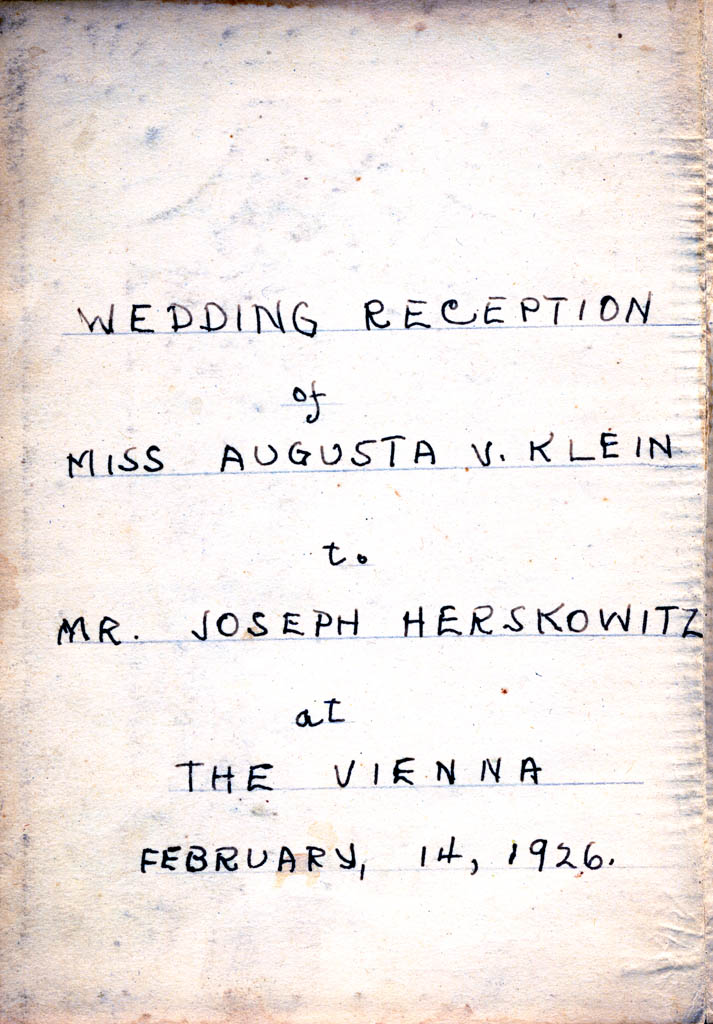 WEDDING RECEPTION
of
MISS AUGUSTA V. KLEIN
to
MR. JOSEPH HERSKOWITZ
at
THE VIENNA
FEBRUARY, 14, 1926.